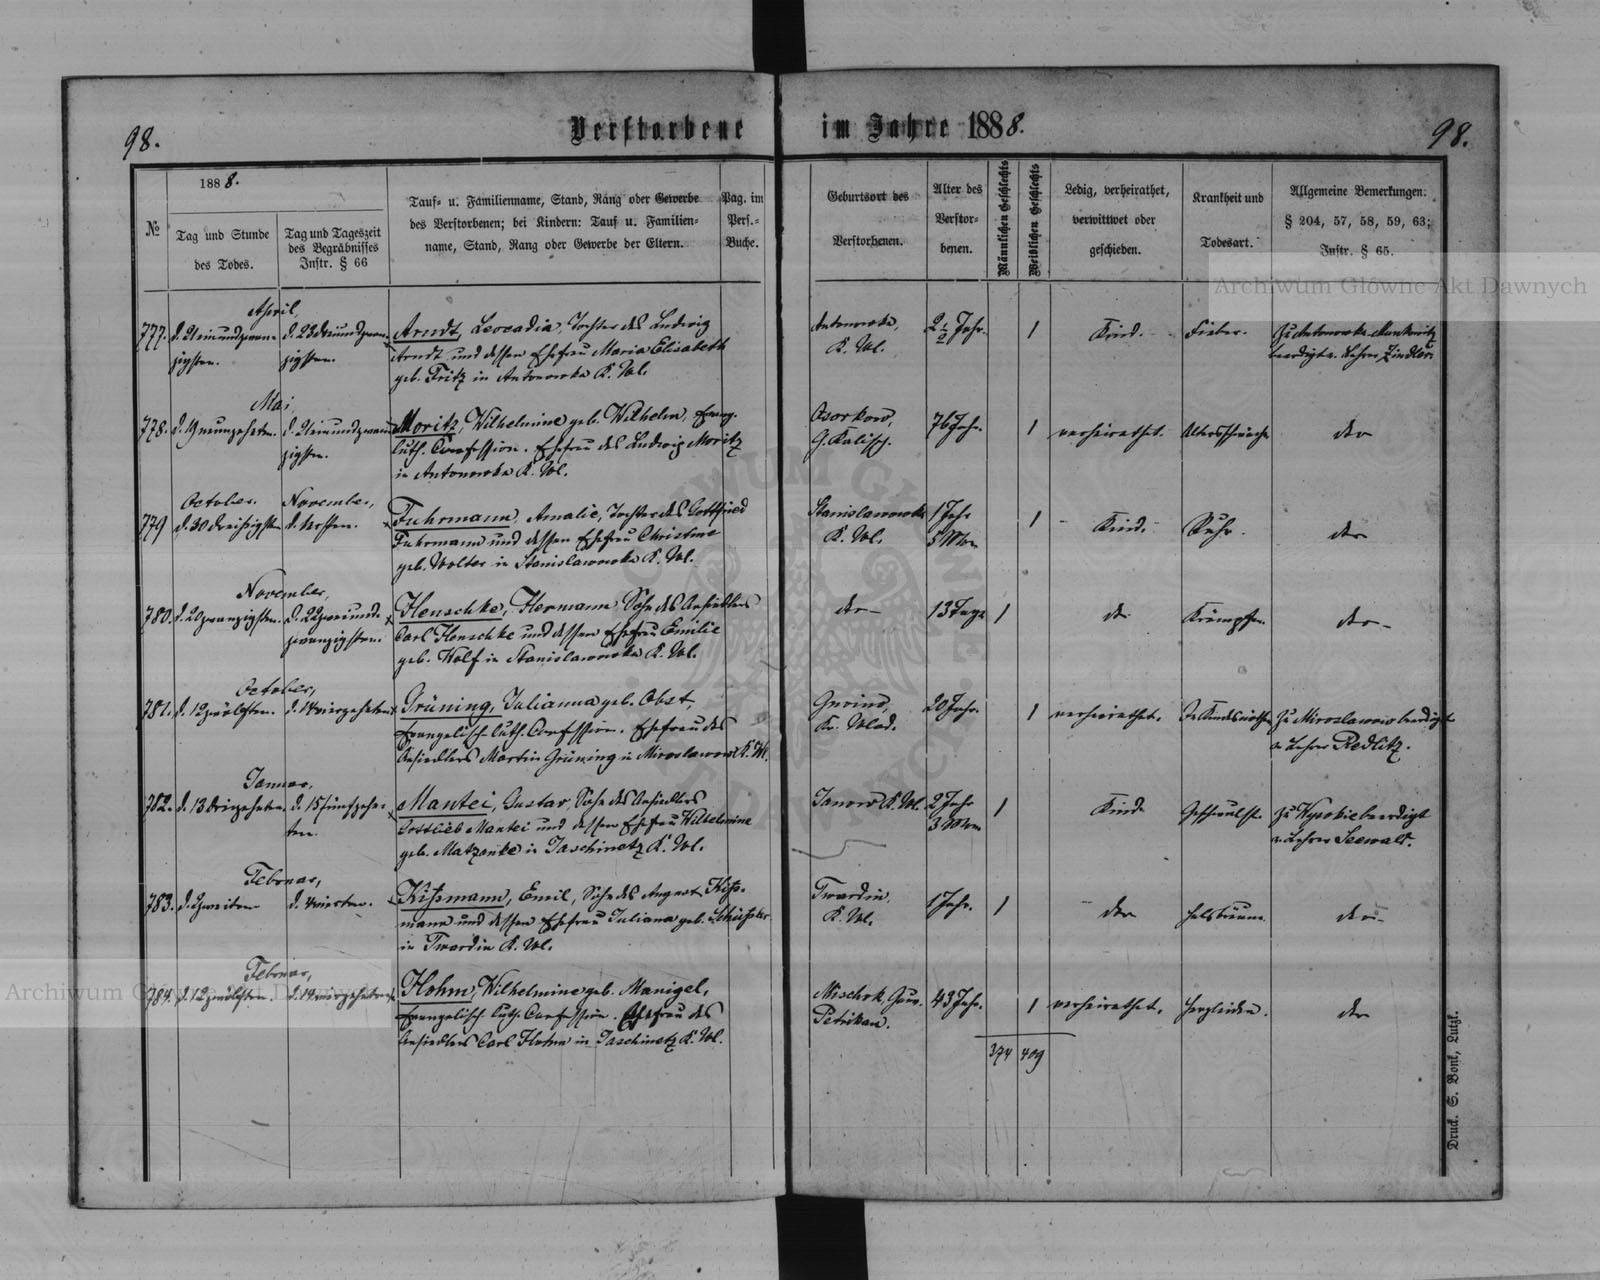 98.
Verstorbene im Jahre 1888.
98.
№
1888.
Tag und Stunde
des Todes.
Tag und Tageszeit
des Begräbnisses
Instr. § 66
Tauf- u. Familienname, Stand, Rang oder Gewerbe
des Verstorbenen; bei Kindern: Tauf u. Familien-
name, Stand, Rang oder Gewerbe der Eltern.
Pag. im
Pers.-
Buche.
Geburtsort des
Verstorbenen.
Alter des
Verstor-
benen.
Männlichen Geschlechts
Weiblichen Geschlechts
Ledig, verheirathet,
verwittwet oder
geschieden.
Krankheit und
Todesart.
Allgemeine Bemerkungen:
§ 204, 57, 58, 59, 63;
Instr. § 65.
April,
777. d. 21 einundzwan-
zigsten.
d. 23 dreiundzwan-
zigsten.
Arndt, Leocadia, Tochter des Ludwig
Arndt und dessen Ehefrau Maria Elisabeth
geb. Fritz in Antonowka K. Wl.
Antonowka,
K. Wl.
2 1/2 Jahr.
1
Kind.
Fieber.
Zu Antonowka
beerdigt v. Lehrer Zindler.
Mai,
778. d. 19 neunzehnten.
d. 21 einundzwan-
zigsten.
Moritz, Wilhelmine geb. Wilhelm, Evang.
luth. Confession. Ehefrau des Ludwig Moritz
in Antonowka K. Wl.
Osorkow,
G. Kalisch.
76 Jahr.
1
verheirathet.
Altersschwäche
der
October. November,
779 d. 30 dreißigsten
d. 1 ersten.
Fuhrmann, Amalie, Tochter des Gottfried
Fuhrmann und dessen Ehefrau Christine
geb. Wolter in Stanislawowka K. Wl.
Stanislawowka
K. Wl.
1 Jahr
5 Mon
1
Kind.
Ruhr.
der
November,
780. d. 20 zwanzigsten.
d. 22 zweiund-
zwanzigsten.
Henschke, Hermann Sohn des Ansiedlers
Carl Henschke und dessen Ehefrau Emilie
geb. Wolf in Stanislawowka K. Wl.
der
13 Tage
1
der
Krämpfen.
der
October,
781. d. 12 zwölften.
d. 14 vierzehnten
Grüning, Julianna geb. Obst,
Evangelisch luth. Confession. Ehefrau des
Ansiedlers Martin Grüning in Miroslawow K. Wl.
Gnoino,
Kr. Wlad.
20 Jahr.
1
verheirathet.
Zu Miroslawow beerdigt
v. Lehrer Redlitz.
Januar,
782. d. 13 dreizehnten.
d. 15 fünfzehn-
ten.
Mantei, Gustav, Sohn des Ansiedlers
Gottlieb Mantei und dessen Ehefrau Wilhelmine
geb. Matzanke in Jaschinetz K. Wl.
Janow K. Wl.
2 Jahr
3 Mon
1
Kind
Geschwulst.
Zu Wysokie beerdigt
v. Lehrer Seewald.
Februar,
783. d. 2 zweiten
d. 4 vierten.
Kißmann, Emil, Sohn des August Kiß-
mann und dessen Ehefrau Juliana geb. Schüßler
in Twardin K. Wl.
Twardin
K. Wl.
1 Jahr.
1
der
Halsbräune
der
Februar,
784. d. 12 zwölften.
d. 14 vierzehnten
Hohm, Wilhelmine geb. Manigel,
Evangelisch luth. Confession. Ehefrau des
Ansiedlers Carl Hohm in Jaschinetz K. Wl.
Gouv.
Petrikau.
43 Jahr.
1
verheirathet.
Herzleiden.
der
374 409
Druck. S. Bonk, Lutzk.
Archiwum Główne Akt Dawnych
Archiwum Główne Akt Dawnych